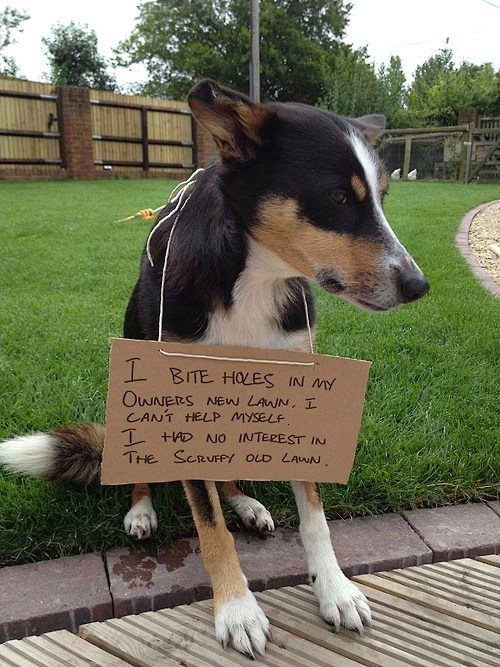 I BITE HOLES IN MY
OWNERS NEW LAWN. I
CAN'T HELP MYSELF.
I HAD NO INTEREST IN
THE SCRUFFY OLD LAWN.